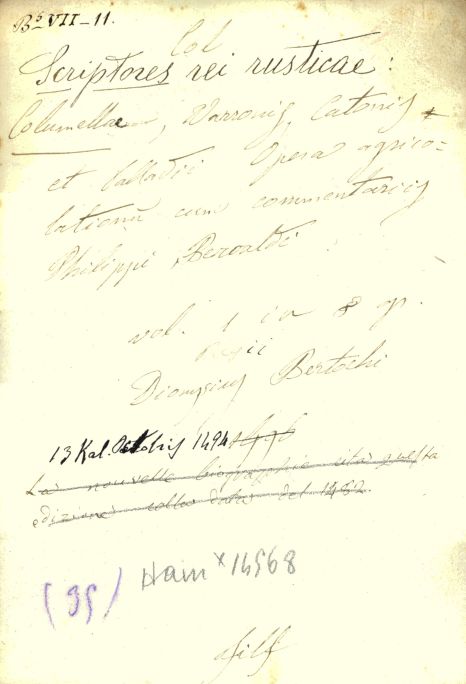 Bº VII-11.
Col
Scriptores rei rusticae:
Columellae, Varronis, Catonis
et Palladii Opera agrico=
lationū cum commentariis
Philippi Beroaldi
vol. 1 in 8 gr.
Regii
Dionysius Bertochi
13 Kal. Octobris 1494
La nouvelle biographie cita questa
edizione colla data del 1482.
(35) Hain × 14568